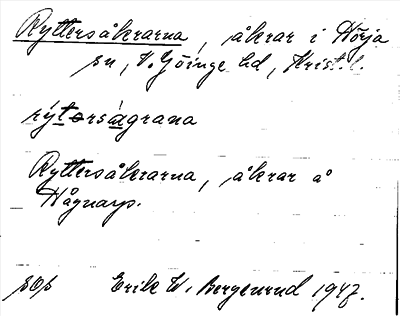 Ryttersåkrarna, åkrar i Hörja
sn, V. Göinge hd, Krist. l.
rý̱tərságrana
Ryttersåkrarna, åkrar å
Hågnarp.
sop
Erik W. Bergenrud 1947.